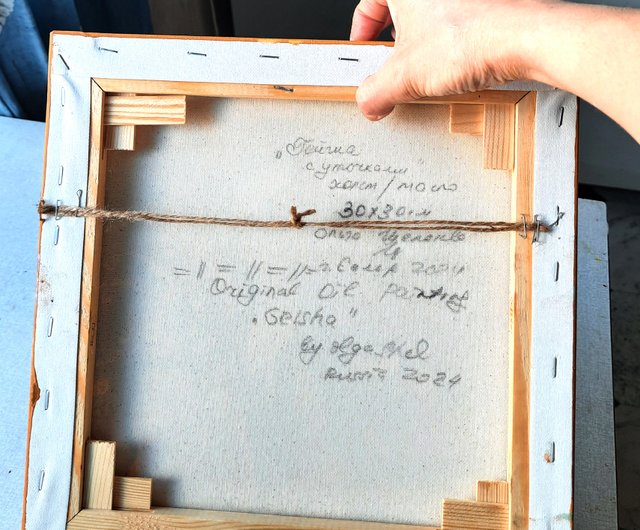 „Гейша
с уточками"
холст/масло
30х30см
Ольга
= 11 = 11 = 11 = 2024
Original Oil Painting
"Geisha"
by Olga
Russia 2024